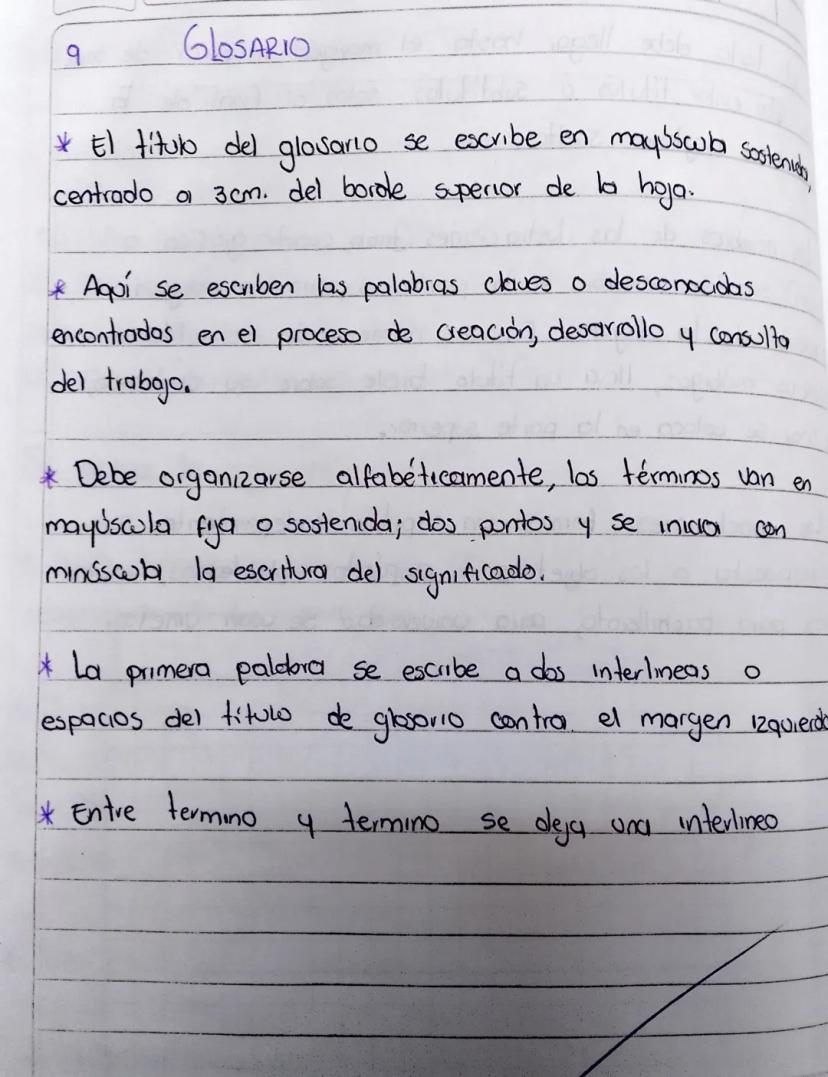 9 GLOSARIO
* El título del glosario se escribe en mayúscula sostenido,
centrado a 3cm. del borde superior de la hoja.
* Aquí se escriben las palabras claves o desconocidas
encontradas en el proceso de creación, desarrollo y consulta
del trabajo.
* Debe organizarse alfabéticamente, los términos van en
mayúscula fija o sostenida; dos puntos y se inicia con
minúscula la escritura del significado.
* La primera palabra se escribe a dos interlineas o
espacios del título de glosario contra el margen izquierdo
* Entre termino y termino se deja una interlineo